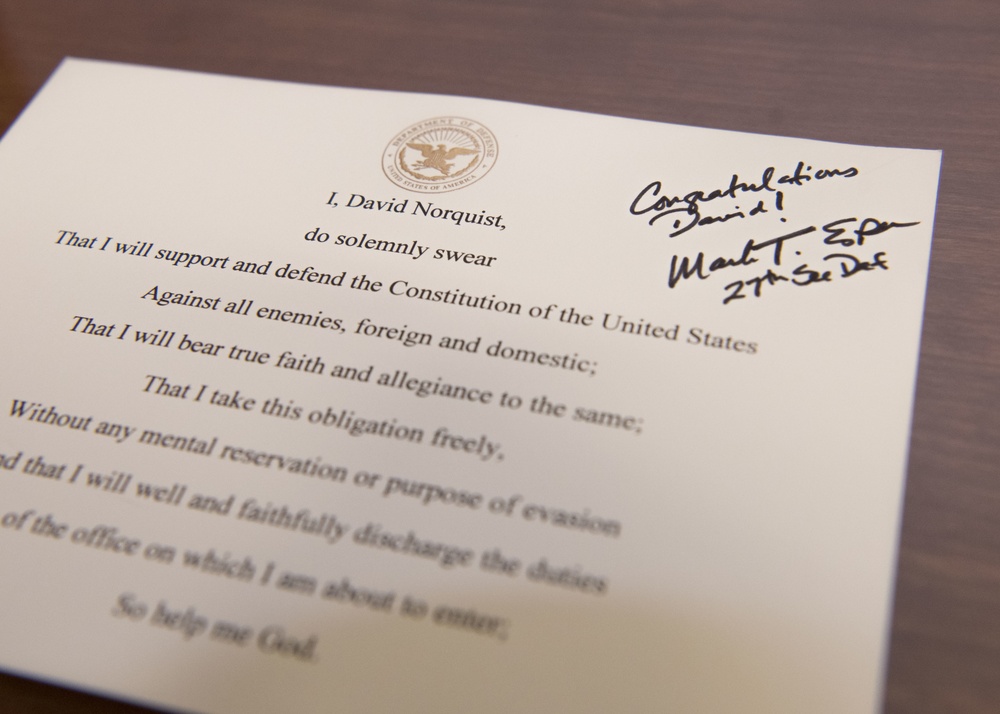 DEPARTMENT OF DEFENSE
UNITED STATES OF AMERICA
Congratulations
David!
Mark T. Esper
27th Sec Def
I, David Norquist,
do solemnly swear
That I will support and defend the Constitution of the United States
Against all enemies, foreign and domestic;
That I will bear true faith and allegiance to the same;
That I take this obligation freely,
Without any mental reservation or purpose of evasion
nd that I will well and faithfully discharge the duties
of the office on which I am about to enter;
So help me God.